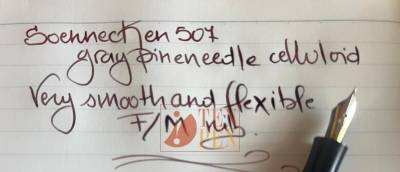 Soennecken 507
gray pineneedle celluloid
Very smooth and flexible
F/M nib.
THE
PEN